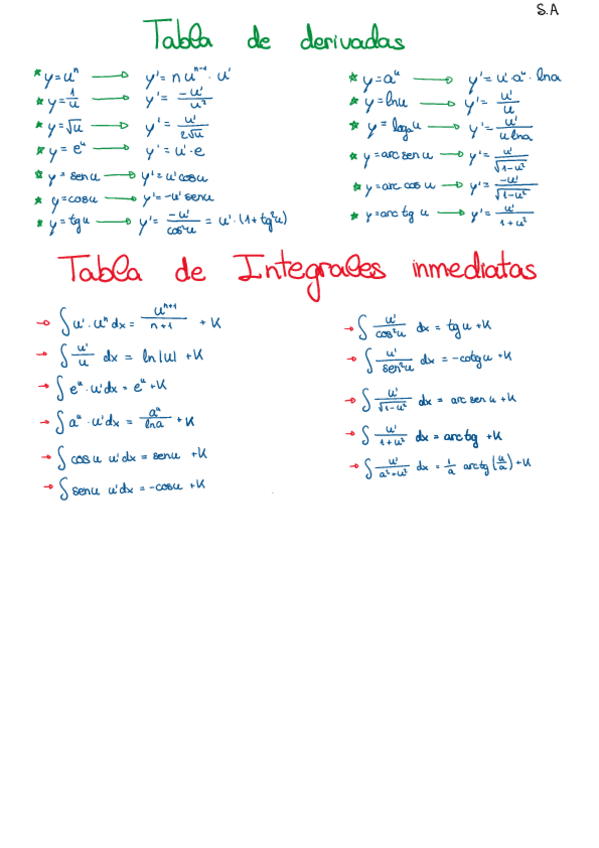 S.A
Tabla de derivadas
* y=uⁿ → y'= n uⁿ⁻¹ · u'
* y=1/u → y'= -u'/u²
* y=√u → y'= u'/2√u
* y= eᵘ → y'= u'·e
* y= senu → y'= u'cosu
* y=cosu → y'=-u' senu
* y=tgu → y'= -u'/cos²u = u'·(1+tg²u)
* y=aᵘ → y'= u'·aᵘ· lna
* y=lnu → y'= u'/u
* y= logₐu → y'= u'/u lna
* y=arc sen u → y'= u'/√1-u²
* y=arc cos u → y'= -u'/√1-u²
* y=arc tg u → y'= u'/1+u²
Tabla de Integrales inmediatas
→ ∫u'·uⁿ dx = uⁿ⁺¹/n+1 + K
→ ∫ u'/u dx = ln|u| +K
→ ∫ eᵘ·u'dx = eᵘ +K
→ ∫ aᵘ·u'dx = aᵘ/lna + K
→ ∫ cosu u'dx = senu +K
→ ∫ senu u'dx = -cosu +K
→ ∫ u'/cos²u dx = tg u +K
→ ∫ u'/sen²u dx = -cotgu +K
→ ∫ u'/√1-u² dx = arc sen u +K
→ ∫ u'/1+u² dx = arctg +K
→ ∫ u'/a²+u² dx = 1/a arctg (u/a) +K